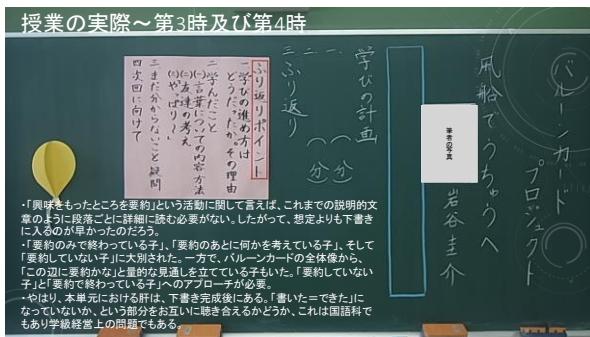 授業の実際～第3時及び第4時
バルーンカード
プロジェクト
風船でうちゅうへ
岩谷圭介
筆者の写真
学びの計画
一、（　分）
二、（　分）
三、ふり返り
ふり返りポイント
一 学びの進め方は
どうだったか。その理由
二 学んだこと
(一) 言葉についての内容方法
(二) 友達の考え
(三) やっぱり～
三 まだ分からないこと疑問
四 次回に向けて
・「興味をもったところを要約」という活動に関して言えば、これまでの説明的文
章のように段落ごとに詳細に読む必要がない。したがって、想定よりも下書き
に入るのが早かったのだろう。
・「要約のみで終わっている子」、「要約のあとに何かを考えている子」、そして
「要約していない子」に大別された。一方で、バルーンカードの全体像から、
「この辺に要約かな」と量的な見通しを立てている子もいた。「要約していない
子」と「要約で終わっている子」へのアプローチが必要。
・やはり、本単元における肝は、下書き完成後にある。「書いた＝できた」に
なっていないか、という部分をお互いに聴き合えるかどうか、これは国語科で
もあり学級経営上の問題でもある。